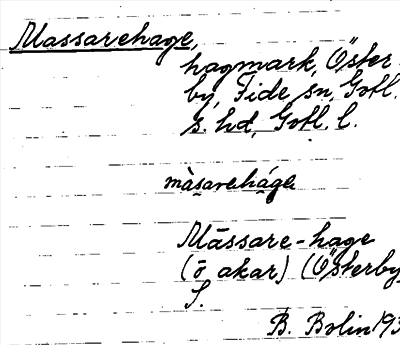 Massarehage,
hagmark, Öster-
by, Fide sn, Gotl.
s. hd, Gotl. l.
màsarehá̀ge
Māssare-hage
(ō akar) (Österby,
S.
B. Bolin 193